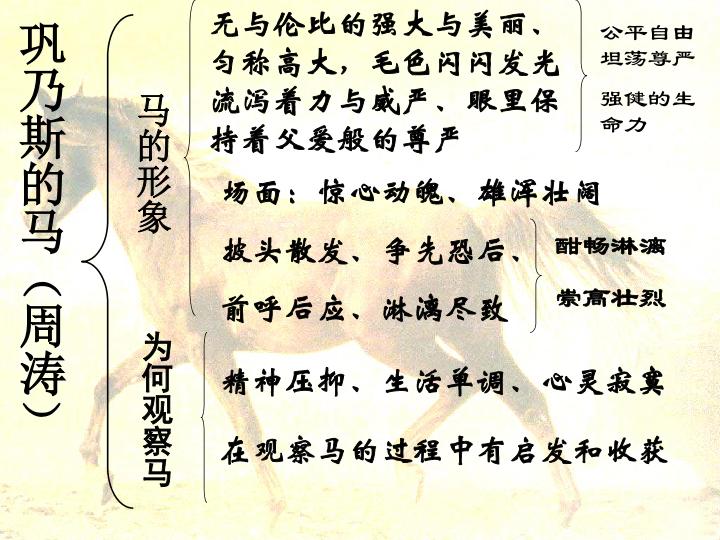 巩乃斯的马（周涛）
马的形象
无与伦比的强大与美丽、
匀称高大，毛色闪闪发光
流泻着力与威严、眼里保
持着父爱般的尊严
公平自由
坦荡尊严
强健的生
命力
场面：惊心动魄、雄浑壮阔
披头散发、争先恐后、
前呼后应、淋漓尽致
酣畅淋漓
崇高壮烈
为何观察马
精神压抑、生活单调、心灵寂寞
在观察马的过程中有启发和收获